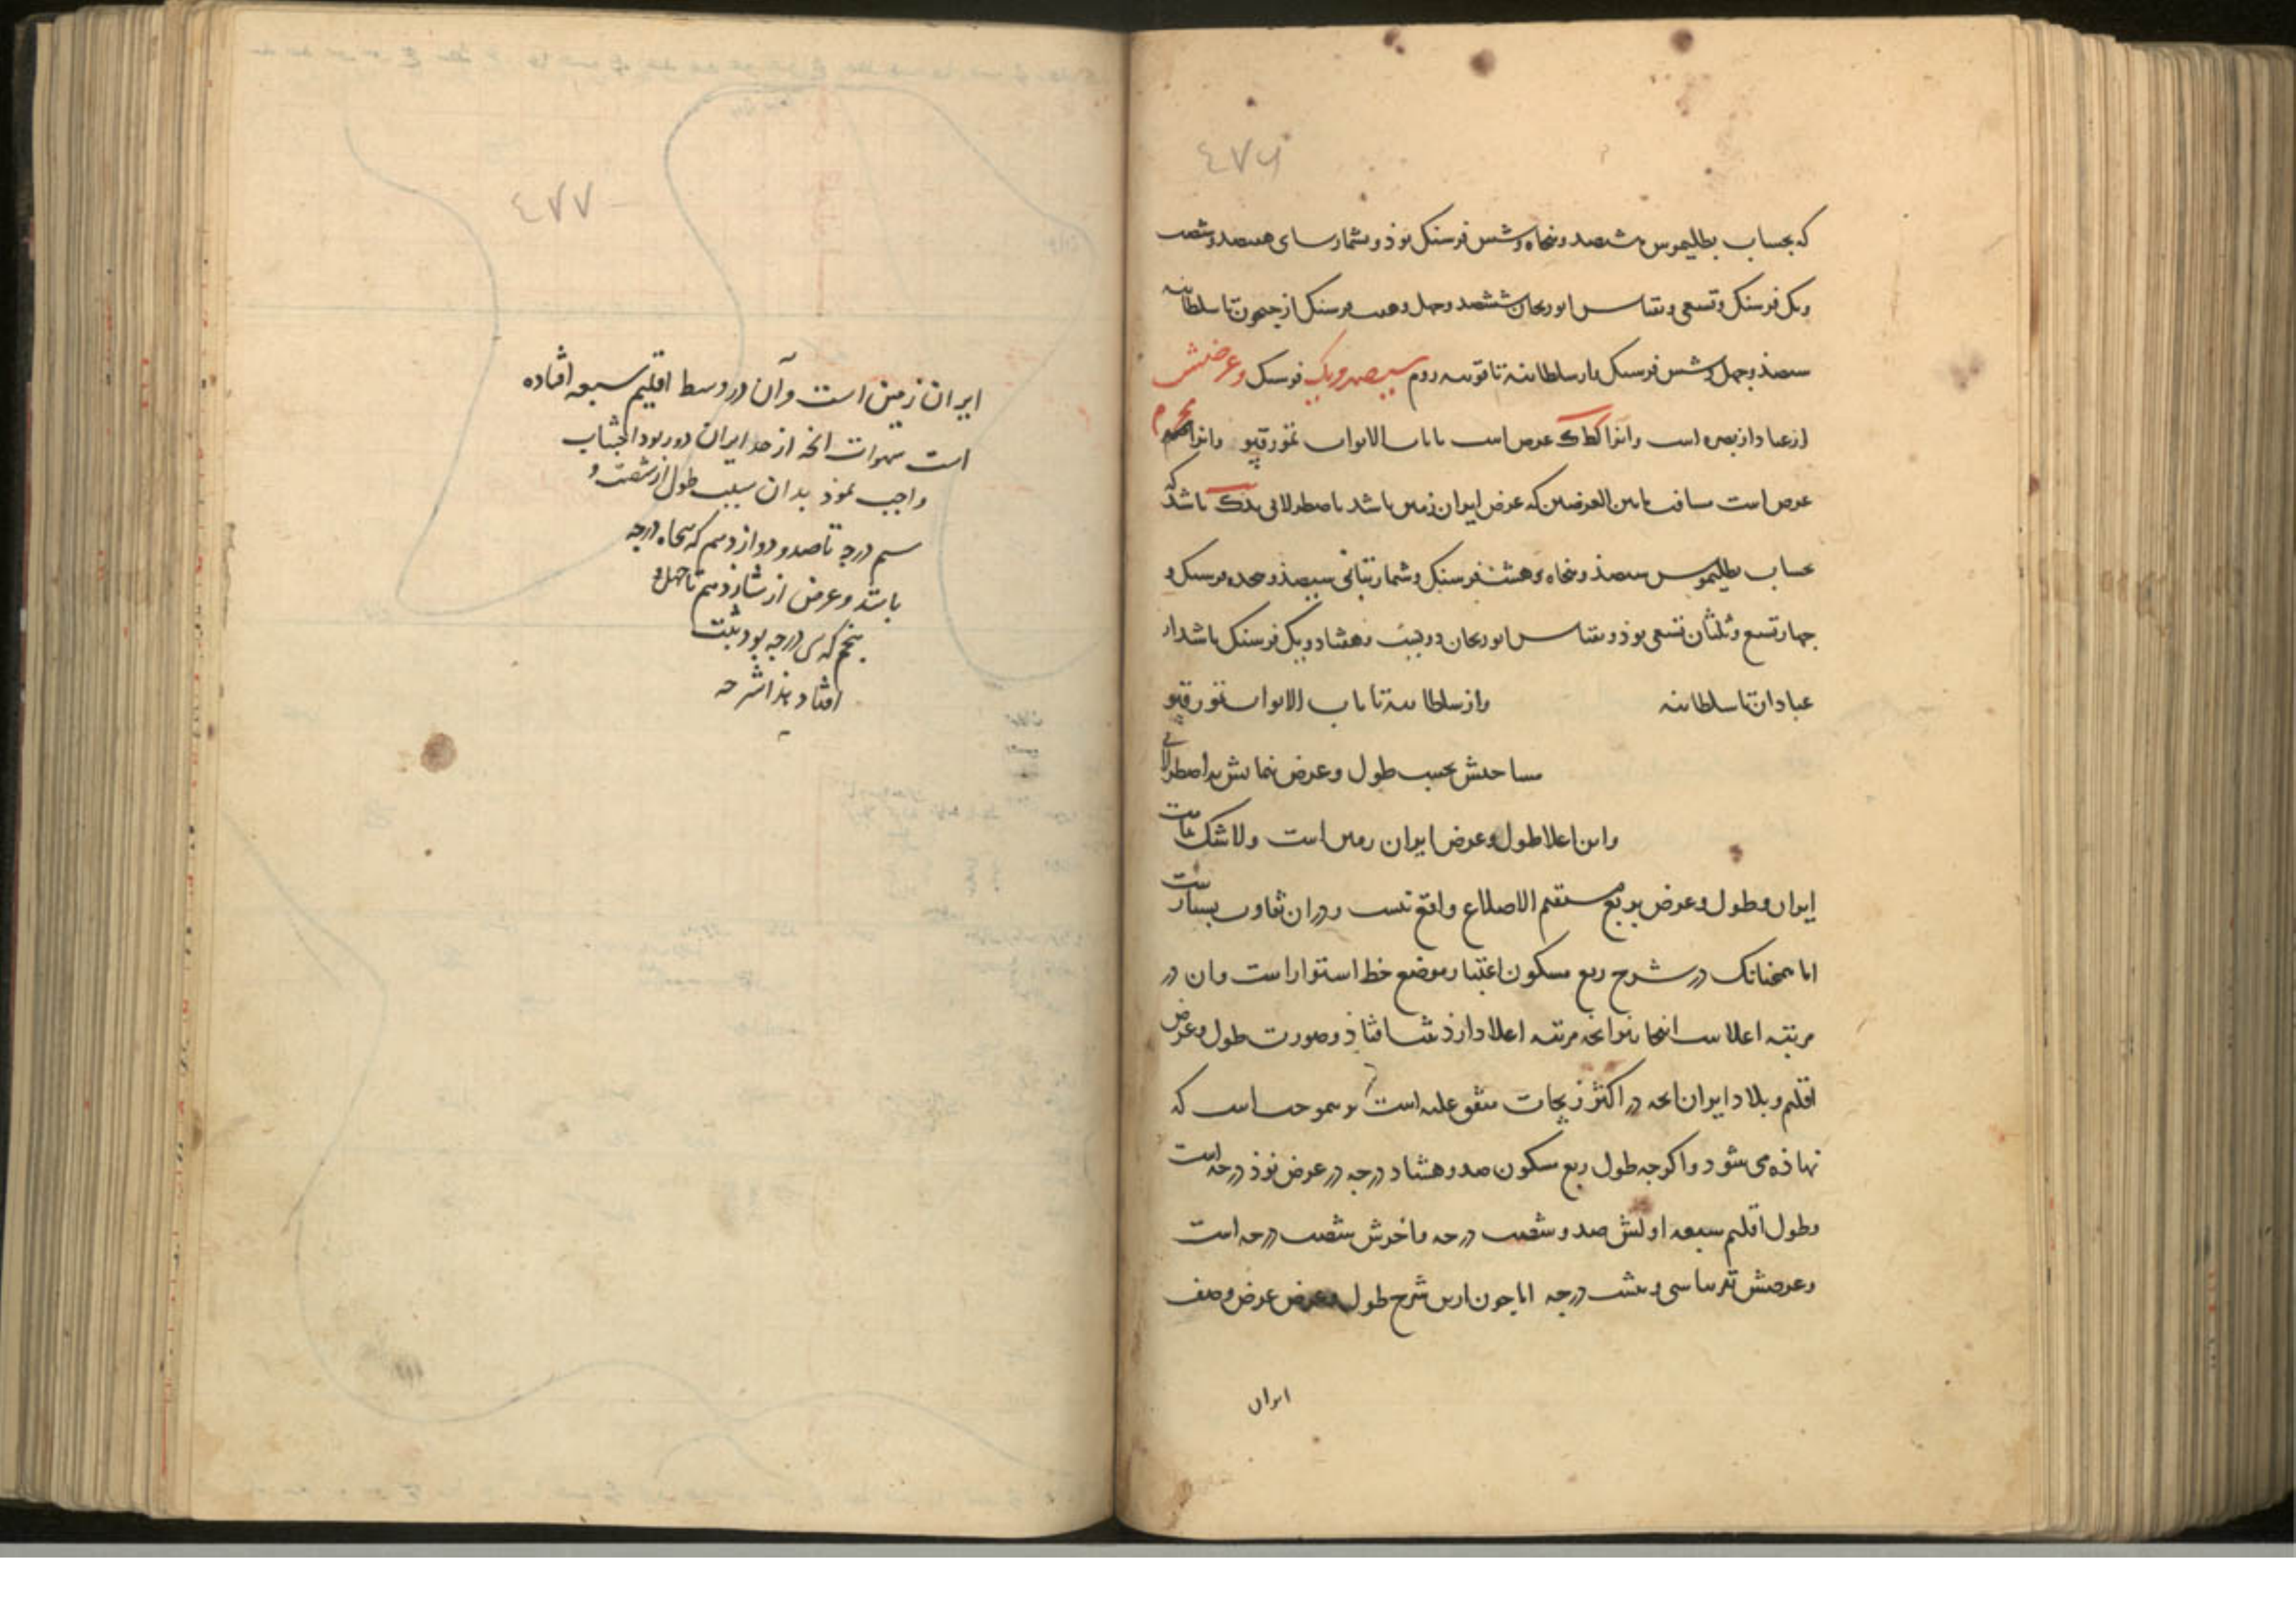 ٤٧٦
که بحساب بطلیموس ششصد و پنجاه و شش فرسنک بوذ و بشمار سای هفتصد و شصت
و یک فرسنک و تسعی و بقیاس ابوریحان ششصد و چهل و هفت فرسنک از جیحون تا سلطانیه
سیصد و چهل و شش فرسنک باز سلطانیه تا قونیه روم سیصد و یک فرسنک و عرضش
از عبادان بصره است و آنرا کط ک عرض است تا باب الابواب تمورقپو و آنرا
عرض است مسافت مابین العرضین که عرض ایران زمین باشد باصطرلابی باشد که
بحساب بطلیموس سیصد و پنجاه و هشت فرسنک و شمار بتانی سیصد و هجده فرسنک و
چهار تسع و ثلثان تسعی بوذ و بقیاس ابوریحان دویست و هشتاد و یک فرسنک باشد از
عبادان تا سلطانیه و از سلطانیه تا باب الابواب تمورقپو
مساحتش بحسب طول و عرض نمایش اصطرلابی
و این اعلا طول و عرض ایران زمین است و لاشک
ایران و طول و عرض بر مربع مستقیم الاضلاع واقع نیست و در آن تفاوت بسیار است
اما همچنانک در شرح ربع مسکون اعتبار موضع خط استوا راست و آن در
مرتبه اعلاست اینجا نیز آنچه مرتبه اعلا دارذ ثبت افتاذ و صورت طول و عرض
اقلیم و بلاد ایران آنچه در اکثر زیجات متفق علیه است است که
نهاذه می شود و اکرچه طول ربع مسکون صد و هشتاد درجه در عرض نوذ درجه است
و طول اقلیم سبعه اولش صد و شصت درجه و آخرش شصت درجه است
و عرضش تقریبا سی و هشت درجه اما چون ازین شرح طول و عرض عرض وصف
ایران
٤٧٧
ایران زمین است و آن در وسط اقلیم سبعه افتاده
است آنچه از حد ایران دور بود اجتناب
واجب نموذ بدان سبب طول از شصت و
سیم درجه تا صد و دوازدهم که پنجاه درجه
باشد و عرض از شانزدهم تا چهل و
پنجم که سی درجه بود ثبت
افتاد